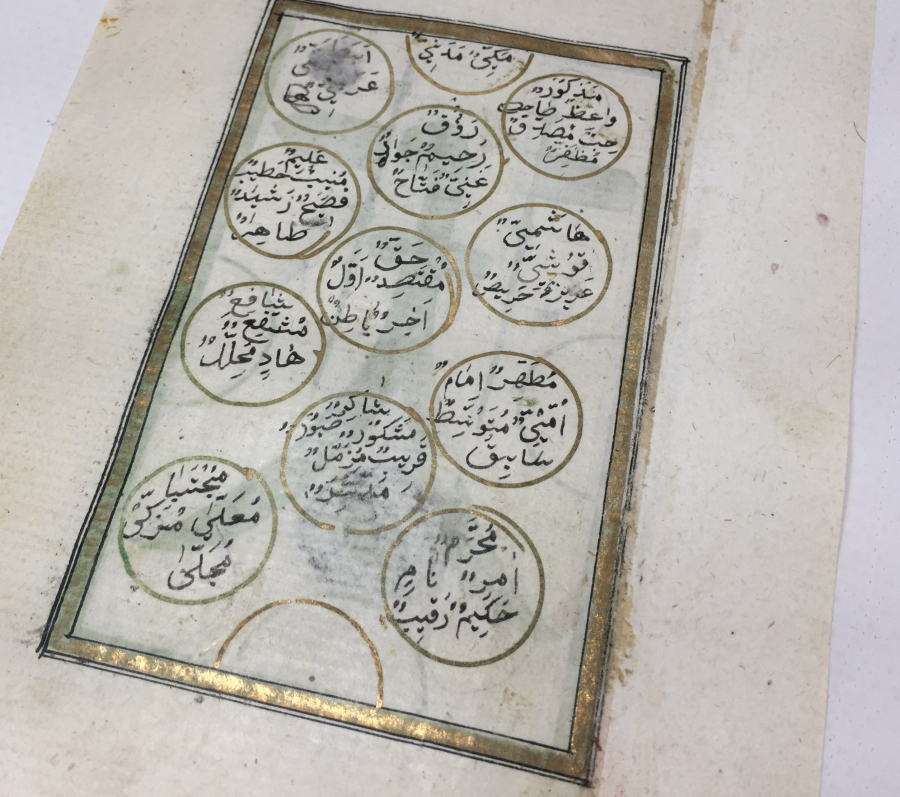 مَكِّيٌّ مَدَنِيٌّ
عَرَبِيٌّ
مَذْكُورٌ
وَاعِظٌ صَاحِبٌ
مُصَدِّقٌ
مُظَفَّرٌ
رَؤُفٌ
رَحِيمٌ جَوَادٌ
غَنِيٌّ فَتَّاحٌ
عَلِيمٌ
مُنِيبٌ خَطِيبٌ
فَصِيحٌ رَشِيدٌ
طَاهِرٌ
هَاشِمِيٌّ
قُرَيْشِيٌّ
عَزِيزٌ حَرِيصٌ
حَقٌّ
مُقْتَصِدٌ اَوَّلٌ
اٰخِرٌ بَاطِنٌ
شَافِعٌ
مُشَفَّعٌ
هَادٍ مُحَلِّلٌ
مُطَهَّرٌ اِمَامٌ
اُمِّيٌّ مُتَوَسِّطٌ
سَابِقٌ
شَاكِرٌ
مَشْكُورٌ صَبُورٌ
قَرِيبٌ مُزَّمِّلٌ
مُجْتَبٰى
مُعَلّٰى مُزَكّٰى
مُجَلّٰى
مُحَرِّمٌ
اٰمِرٌ نَاهٍ
حَكِيمٌ رَقِيبٌ